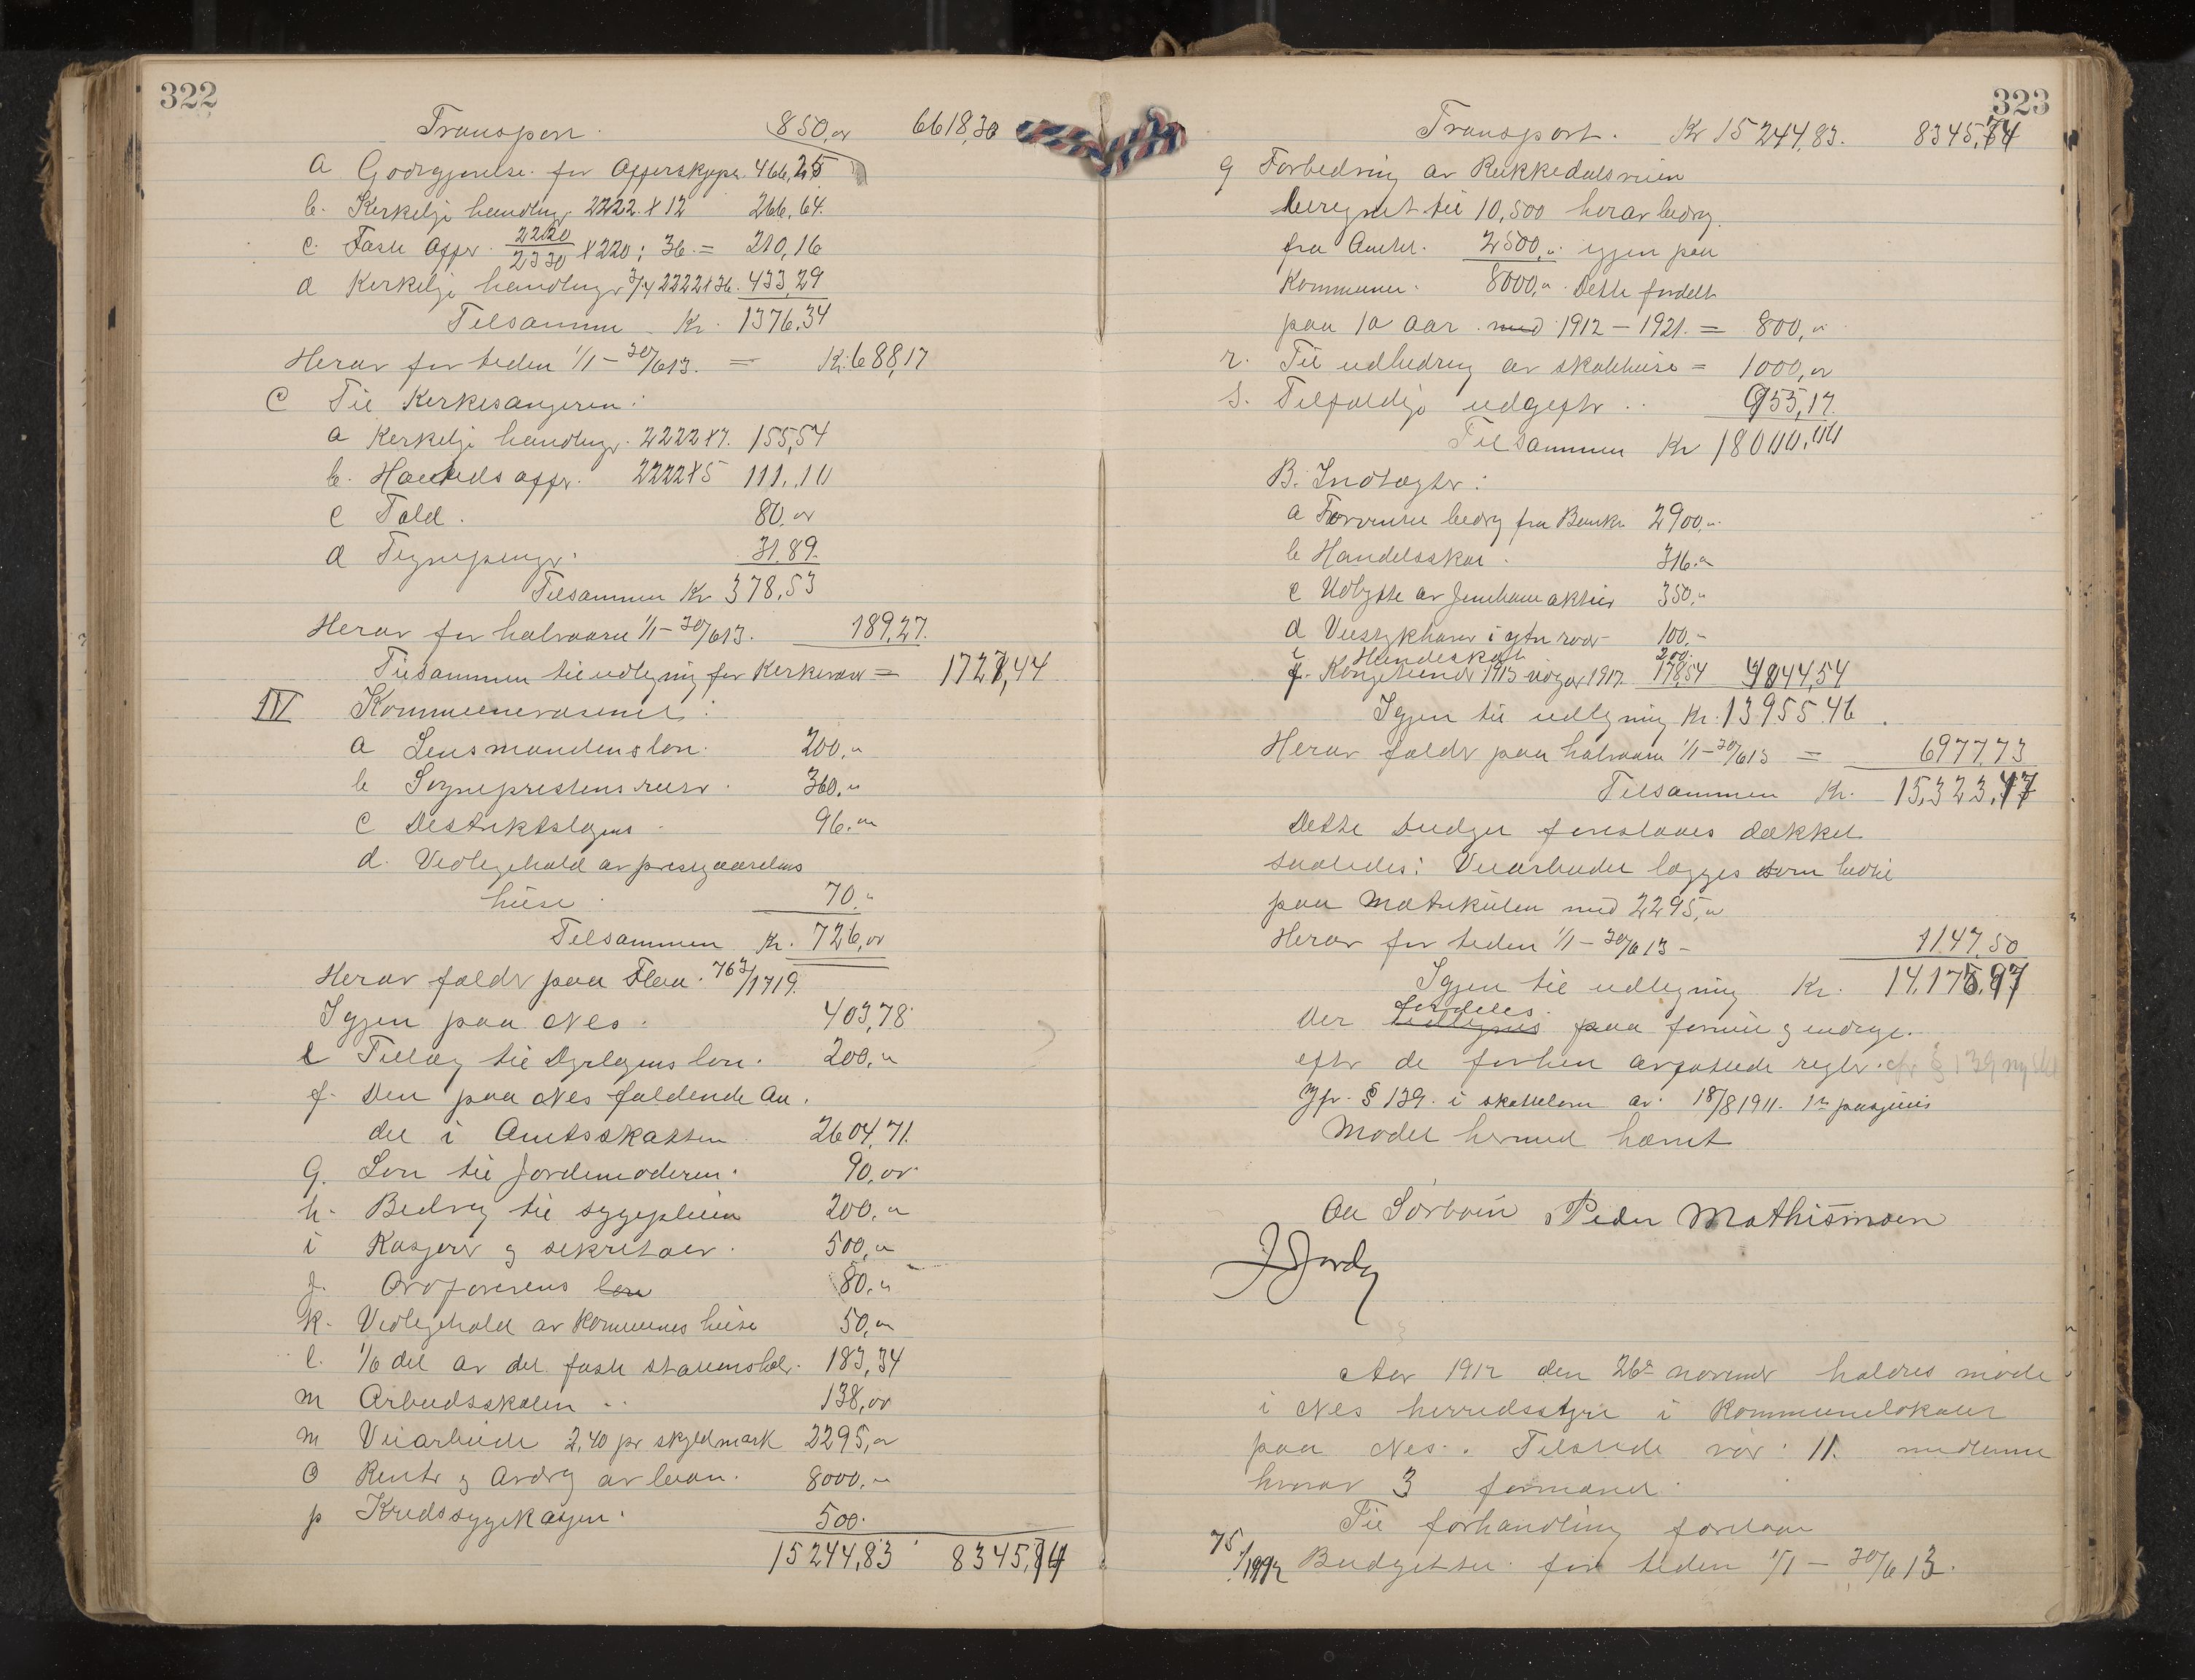 322
Transport 850,00 6618,30
a Godtgjørelse for Offerskyps 466,25
b. Kirkelige handlinger 2222 x 12 266,64
c. Faste Offer 2220/2330 x 220 : 36 = 210,16
d Kirkelige handlinger 3/4 2222 x 36. 433,29
Tilsammen Kr. 1376,34
Herav for tiden 1/1 - 30/6 13. = Kr. 688,17
C Til Kirkesangeren:
a Kirkelige handlinger 2222 x 7. 155,54
b. Høitids offer. 2222 x 5 111,10
c Told. 80,00
d 31.89.
Tilsammen Kr 378,53
Herav for halvaaret 1/1 - 30/6 13. 189,27.
Tilsammen til udligning for Kirkevæsen = 1727,44
IV Kommunevæsenet:
a Lensmandens løn. 200,"
b Sogneprestens 360,"
c Distriktslægens 96,"
d. Vedligehold av prestegaardens
huse 70,"
Tilsammen Kr. 726,00
Herav falder paa Flaa 763/1719
Igjen paa Nes. 403,78
e Tillæg til Dyrlægens løn. 200,"
f. Den paa Nes faldende An.
del i Amtsskatten 2604,71.
g. Løn til Jordemoderen. 90,00
h. Bidrag til sygepleien 200,"
i Kasjerer og sekretær. 500,"
j. Ordførerens løn 80,"
k. Vedligehold av kommunens huse 50,"
l. 1/6 del av det faste 183,34
m Arbeidsskolen 138,00
m Veiarbeide 2,40 pr skyldmark 2295,"
o Renter og Avdrag av laan. 8000,"
p Kredssygekassen. 500.
15244,83 8345,74
323
Transport. Kr 15244,83. 8345,74
q Forbedring av Rukkedalsveien
beregnet til 10,500 herav bidrag
fra Amtet. 2500,". igjen paa
Kommunen. 8000,". Dette fordelt
paa 10 aar. med 1912 - 1921. = 800,"
r. Til udbedring av skolehuse = 1000,00
s. Tilfældige udgifter 955,17.
Tilsammen Kr 18000,00
B. Indtægter:
a bidrag fra Banken 2900,"
b Handelsskat. 316,"
c Udbytte av Jernbaneaktier 350,"
d i ytre 100,-
e Hundeskat 200.
f. 1913 1917 178,54 4044,54
Igjen til udligning Kr. 13955.46
Herav falder paa halvaaret 1/1 - 30/6 13 = 6977,73
Tilsammen Kr. 15,323,47
Dette budget foreslaaes dækket
saaledes: Veiarbeidet lægges som
paa Matrikulen med 2295,"
Herav for tiden 1/1 - 30/6 13 - 1147,50
Igjen til udligning Kr. 14,175,97
fordeles
Der udlignes paa formue og indtægt.
efter de forhen avfattede regler. cfr § 139
Jfr. § 139. i skatteloven av 18/8 1911.
Mødet hermed hævet
Peder Mathismoen
Aar 1912 den 26de november holdtes møde
i Nes herredsstyre i Kommunelokalet
paa Nes. Tilstede var 11. medlemmer
hvorav 3 formænd.
Til forhandling forelaa
75/1912 Budgetter for tiden 1/1 - 30/6 13.